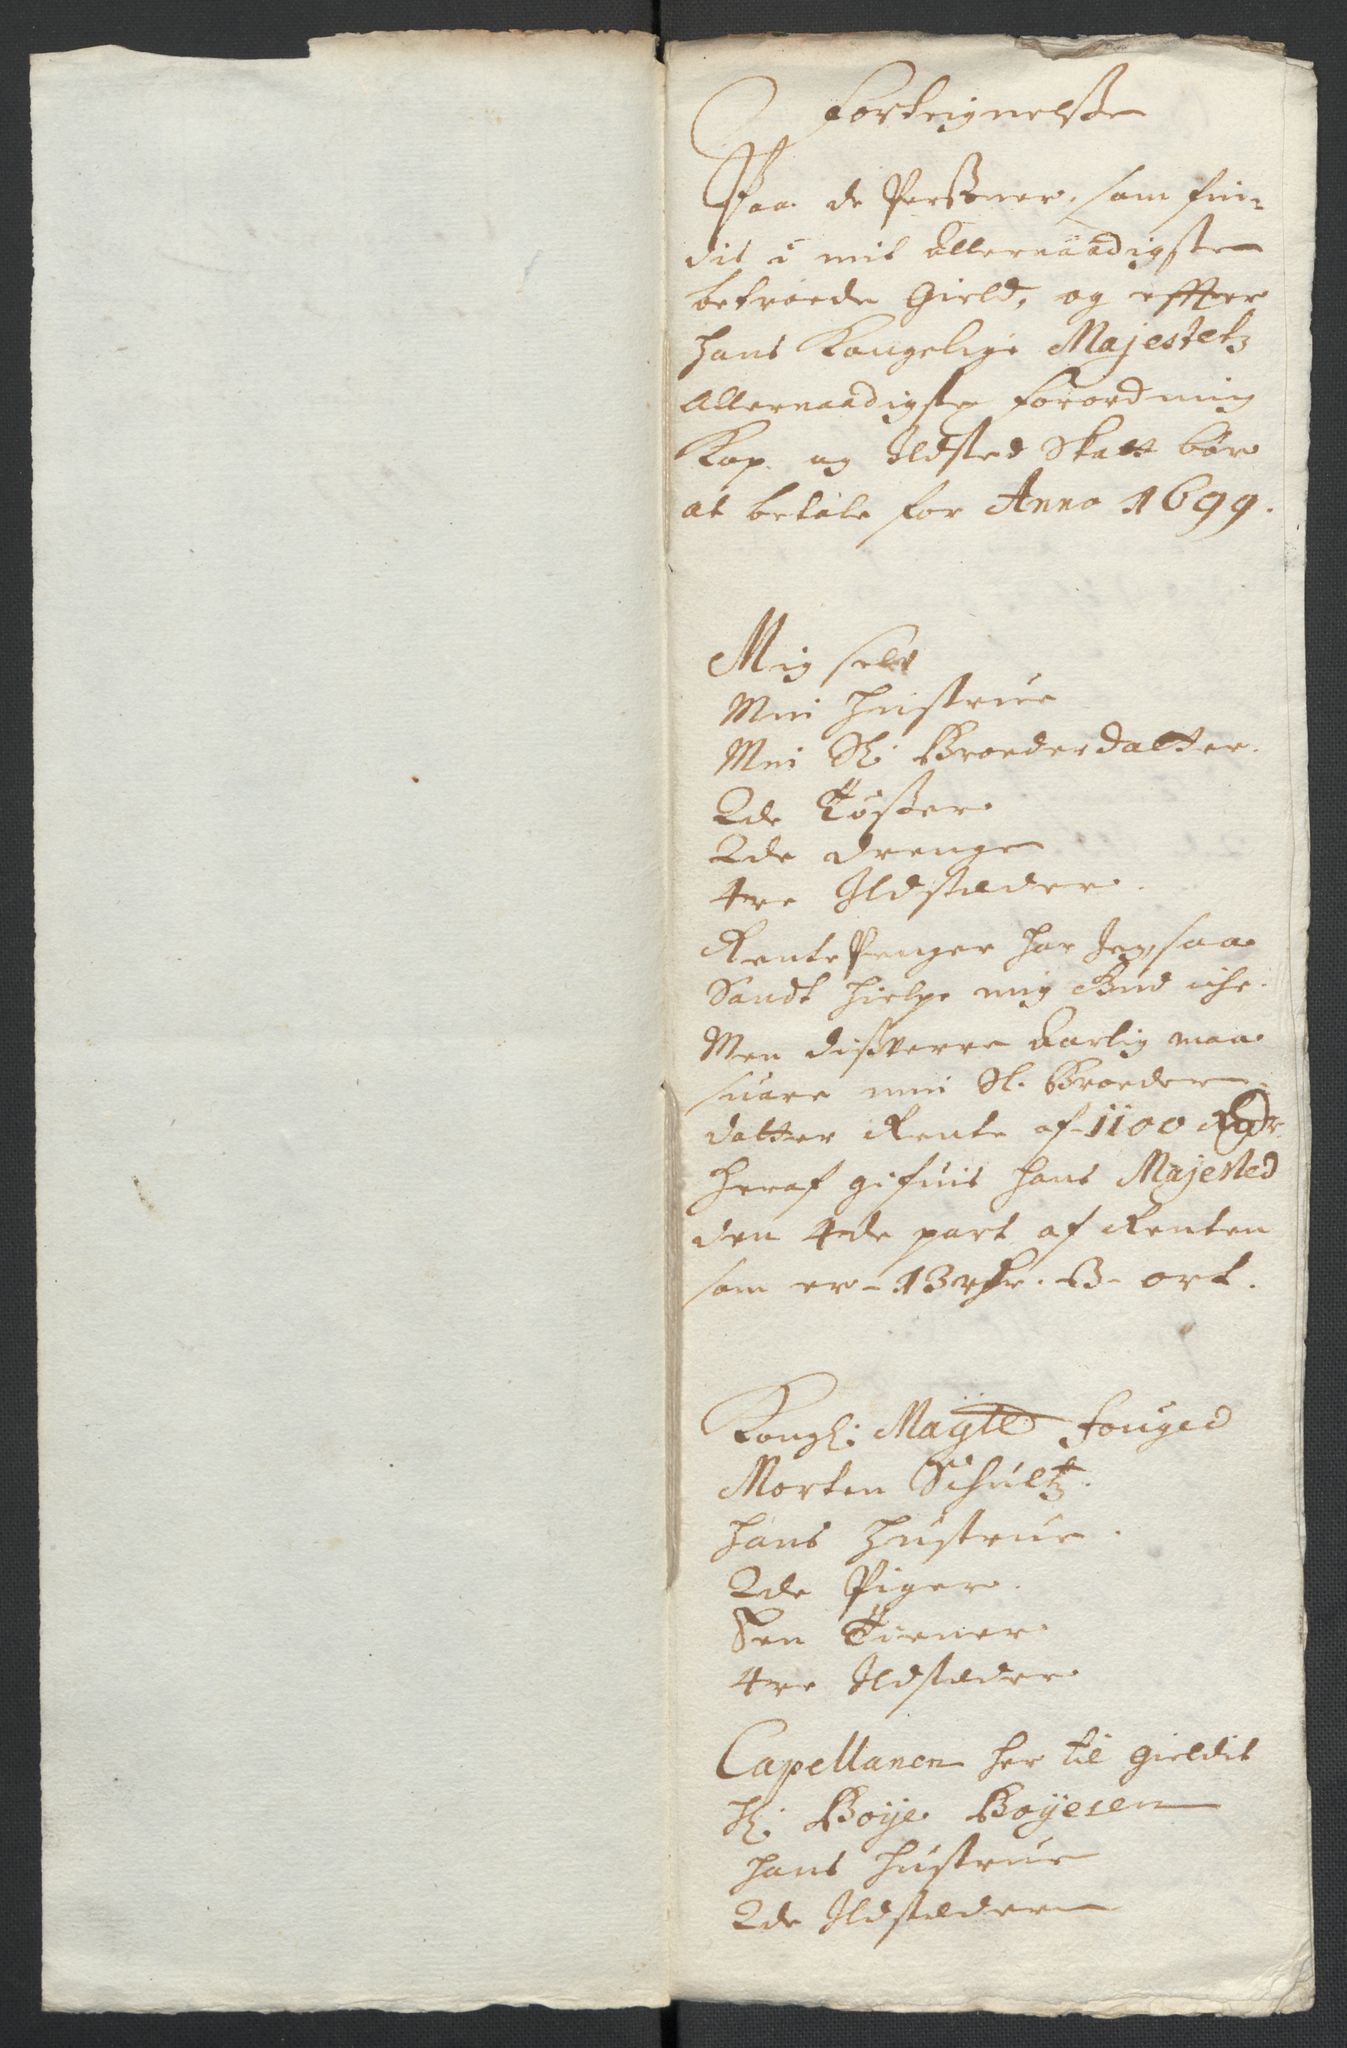 Forteignelsse
Paa de Perssoner, som fin-
dis i mit Allernaadigste
betroede Gield, og effter
hans Kongelige Majestetz
Allernaadigste Forordning
Kop og Ildsted Skatt bør
at betale for Anno 1699.
Mig selv
Min Hustrue
Min Sl: Broederdatter.
2de Tøsser
2de drenge
4re Ildstæder.
Rente Penger har Jeg, saa
Sandt hielpe mig Gud iche.
Men dissverre Aarlig maa
suare min Sl. Broeder
datter Rente af 1100 Rdr
heraf gifuis hans Majested
den 4de part af Renten
som er - 13 rdr. 3 - ort.
Kongl: Maytz fouged
Morten Schultz.
hans Hustrue.
2de Piger.
Een Tiener.
4re Ildstæder
Capellanen her til Gieldit
Hr: Boye Boyesen
hans hustrue
2de Ildstæder